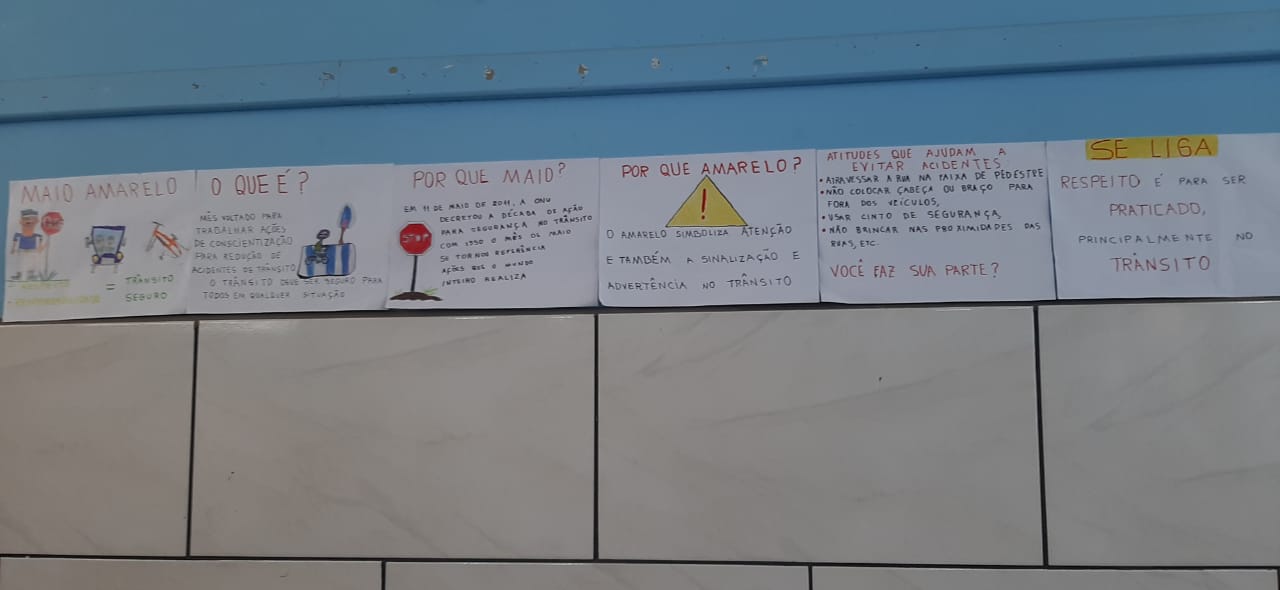 MAIO AMARELO
STOP
= TRÂNSITO
SEGURO
O QUE É?
MÊS VOLTADO PARA
TRABALHAR AÇÕES
DE CONSCIENTIZAÇÃO
PARA REDUÇÃO DE
ACIDENTES DE TRÂNSITO
O TRÂNSITO DEVE SER SEGURO PARA
TODOS EM QUALQUER SITUAÇÃO
POR QUE MAIO?
EM 11 DE MAIO DE 2011, A ONU
DECRETOU A DÉCADA DE AÇÃO
PARA SEGURANÇA NO TRÂNSITO
COM ISSO O MÊS DE MAIO
SE TORNOU REFERÊNCIA
AÇÕES QUE O MUNDO
INTEIRO REALIZA
STOP
POR QUE AMARELO?
!
O AMARELO SIMBOLIZA ATENÇÃO
E TAMBÉM A SINALIZAÇÃO E
ADVERTÊNCIA NO TRÂNSITO
ATITUDES QUE AJUDAM A
EVITAR ACIDENTES
• ATRAVESSAR A RUA NA FAIXA DE PEDESTRE
• NÃO COLOCAR CABEÇA OU BRAÇO PARA
FORA DOS VEÍCULOS,
• USAR CINTO DE SEGURANÇA,
• NÃO BRINCAR NAS PROXIMIDADES DAS
RUAS, ETC.
VOCÊ FAZ SUA PARTE?
SE LIGA
RESPEITO É PARA SER
PRATICADO,
PRINCIPALMENTE NO
TRÂNSITO